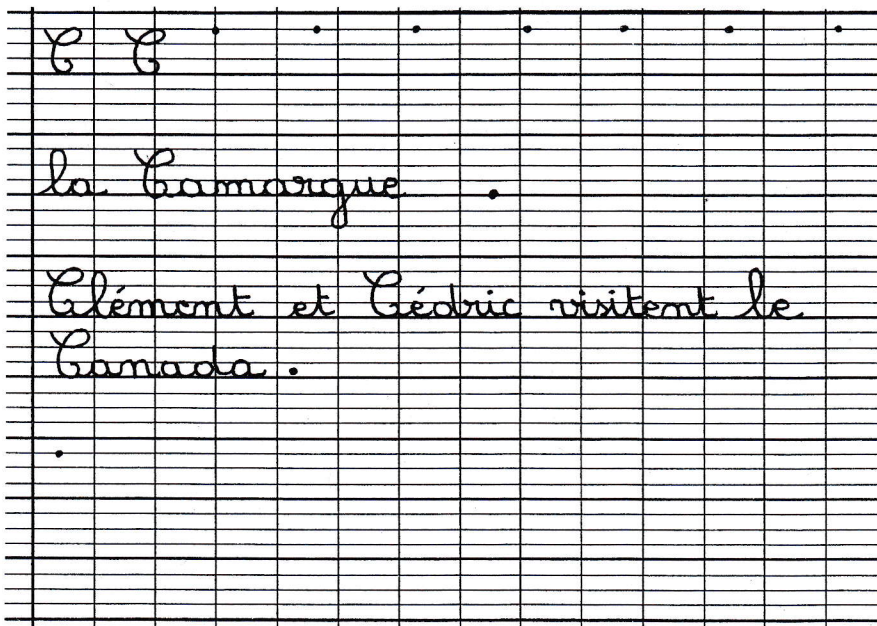 C C . . . . . . .
la Camargue .
Clément et Cédric visitent le
Canada .
.